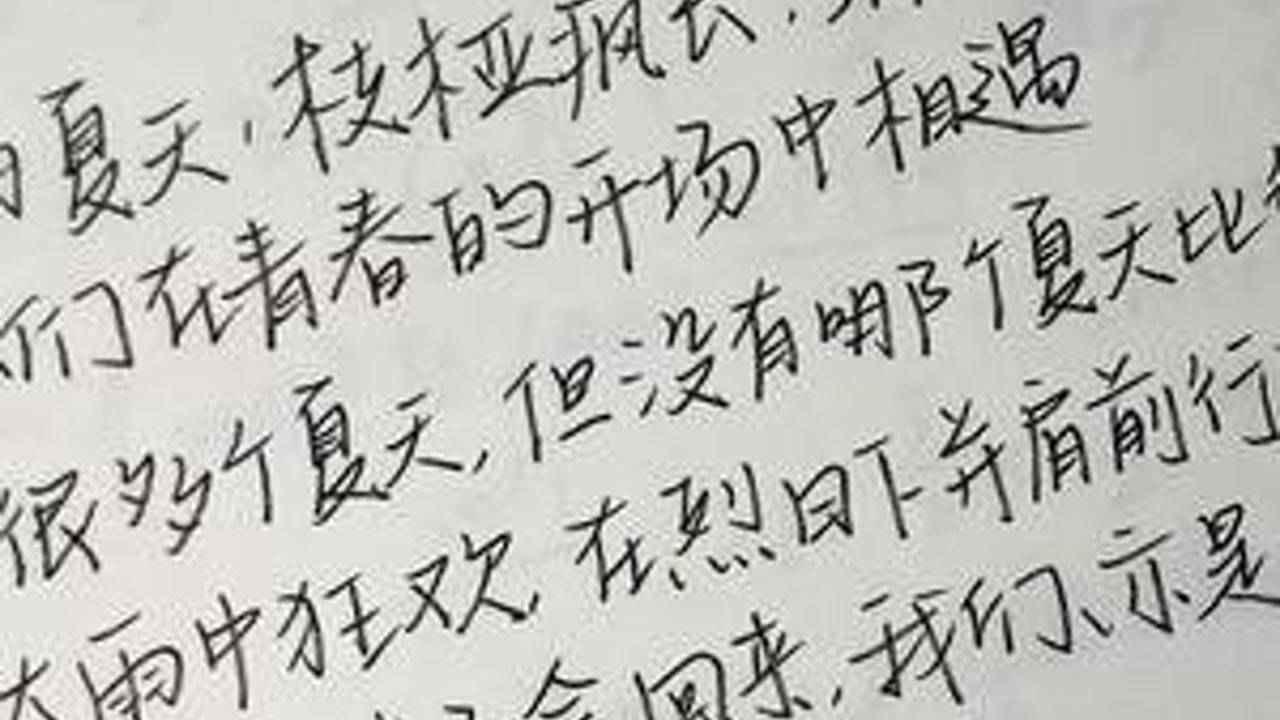 夏天，枝桠疯长，
们在青春的开场中相遇
很多个夏天，但没有哪个夏天比
大雨中狂欢，在烈日下并肩前行
会回来，我们亦是